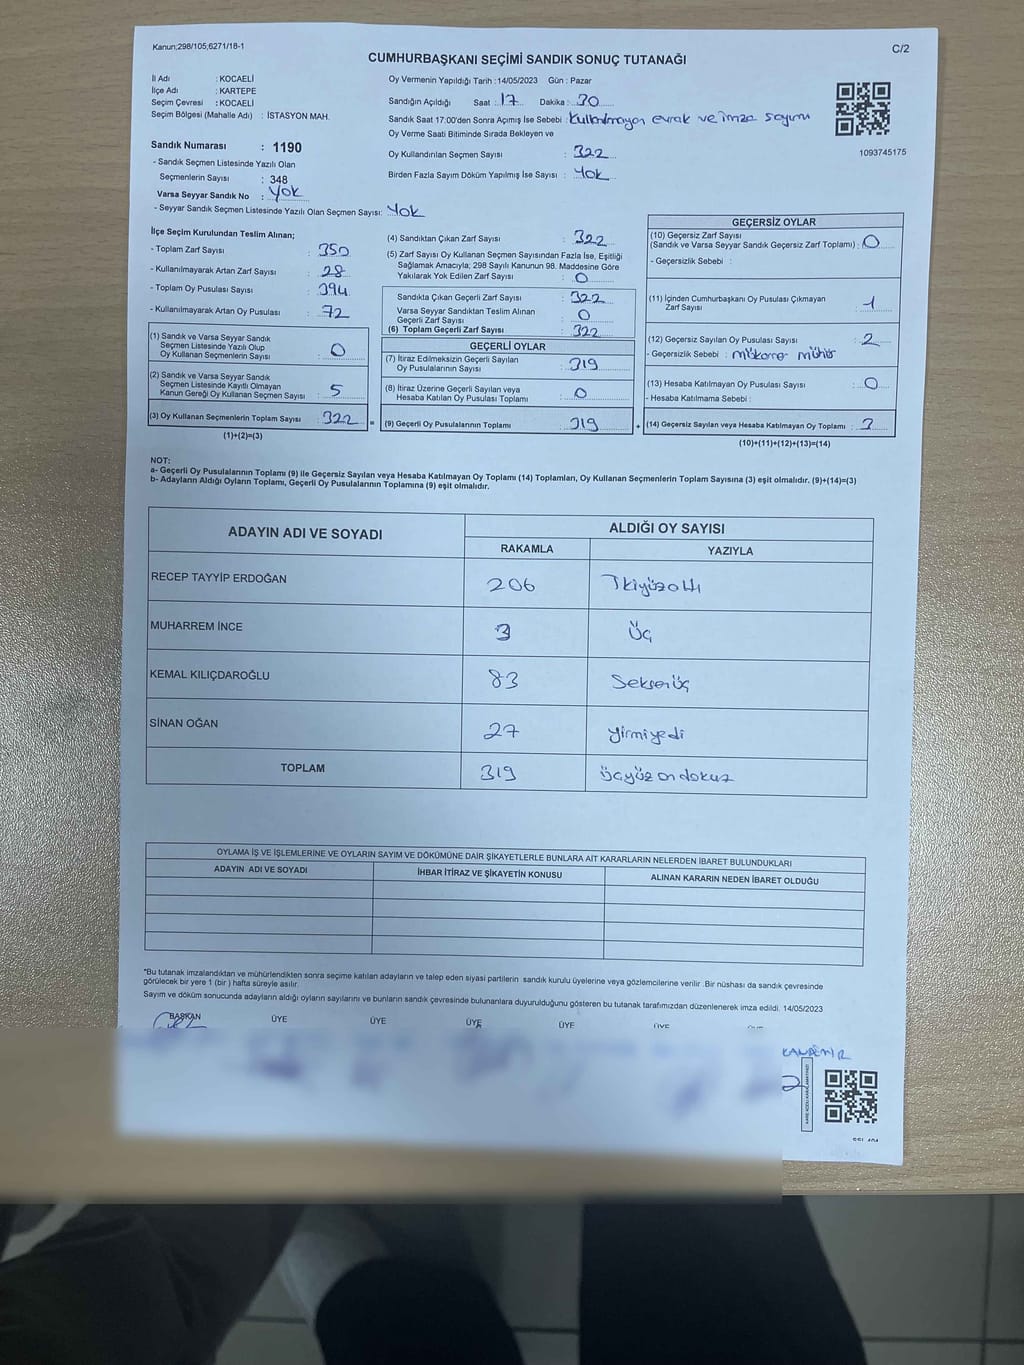 Kanun;298/105;6271/18-1
C/2
CUMHURBAŞKANI SEÇİMİ SANDIK SONUÇ TUTANAĞI
İl Adı : KOCAELİ
İlçe Adı : KARTEPE
Seçim Çevresi : KOCAELİ
Seçim Bölgesi (Mahalle Adı) : İSTASYON MAH.
Sandık Numarası : 1190
- Sandık Seçmen Listesinde Yazılı Olan
Seçmenlerin Sayısı : 348
Varsa Seyyar Sandık No : Yok
- Seyyar Sandık Seçmen Listesinde Yazılı Olan Seçmen Sayısı: Yok
Oy Vermenin Yapıldığı Tarih :14/05/2023 Gün : Pazar
Sandığın Açıldığı Saat : 17 Dakika : 30
Sandık Saat 17:00'den Sonra Açımış İse Sebebi : Kullanılmayan evrak ve imza sayımı
Oy Verme Saati Bitiminde Sırada Bekleyen ve
Oy Kullandırılan Seçmen Sayısı : 322
Birden Fazla Sayım Döküm Yapılmış İse Sayısı : Yok
1093745175
İlçe Seçim Kurulundan Teslim Alınan;
- Toplam Zarf Sayısı : 350
- Kullanılmayarak Artan Zarf Sayısı : 28
- Toplam Oy Pusulası Sayısı : 394
- Kullanılmayarak Artan Oy Pusulası : 72
(1) Sandık ve Varsa Seyyar Sandık
Seçmen Listesinde Yazılı Olup
Oy Kullanan Seçmenlerin Sayısı : 0
(2) Sandık ve Varsa Seyyar Sandık
Seçmen Listesinde Kayıtlı Olmayan
Kanun Gereği Oy Kullanan Seçmen Sayısı : 5
(3) Oy Kullanan Seçmenlerin Toplam Sayısı : 322
(1)+(2)=(3)
(4) Sandıktan Çıkan Zarf Sayısı : 322
(5) Zarf Sayısı Oy Kullanan Seçmen Sayısından Fazla İse, Eşitliği
Sağlamak Amacıyla; 298 Sayılı Kanunun 98. Maddesine Göre
Yakılarak Yok Edilen Zarf Sayısı : 0
Sandıkta Çıkan Geçerli Zarf Sayısı : 322
Varsa Seyyar Sandıktan Teslim Alınan
Geçerli Zarf Sayısı : 0
(6) Toplam Geçerli Zarf Sayısı : 322
GEÇERLİ OYLAR
(7) İtiraz Edilmeksizin Geçerli Sayılan
Oy Pusulalarının Sayısı : 319
(8) İtiraz Üzerine Geçerli Sayılan veya
Hesaba Katılan Oy Pusulası Toplamı : 0
= (9) Geçerli Oy Pusulalarının Toplamı : 319 +
GEÇERSİZ OYLAR
(10) Geçersiz Zarf Sayısı
(Sandık ve Varsa Seyyar Sandık Geçersiz Zarf Toplamı) : 0
- Geçersizlik Sebebi :
(11) İçinden Cumhurbaşkanı Oy Pusulası Çıkmayan
Zarf Sayısı : 1
(12) Geçersiz Sayılan Oy Pusulası Sayısı : 2
- Geçersizlik Sebebi : mükerrer mühür
(13) Hesaba Katılmayan Oy Pusulası Sayısı : 0
- Hesaba Katılmama Sebebi :
(14) Geçersiz Sayılan veya Hesaba Katılmayan Oy Toplamı : 3
(10)+(11)+(12)+(13)=(14)
NOT:
a- Geçerli Oy Pusulalarının Toplamı (9) ile Geçersiz Sayılan veya Hesaba Katılmayan Oy Toplamı (14) Toplamları, Oy Kullanan Seçmenlerin Toplam Sayısına (3) eşit olmalıdır. (9)+(14)=(3)
b- Adayların Aldığı Oyların Toplamı, Geçerli Oy Pusulalarının Toplamına (9) eşit olmalıdır.
ADAYIN ADI VE SOYADI ALDIĞI OY SAYISI
RAKAMLA YAZIYLA
RECEP TAYYİP ERDOĞAN 206 İkiyüzaltı
MUHARREM İNCE 3 Üç
KEMAL KILIÇDAROĞLU 83 Seksenüç
SİNAN OĞAN 27 yirmiyedi
TOPLAM 319 üçyüzondokuz
OYLAMA İŞ VE İŞLEMLERİNE VE OYLARIN SAYIM VE DÖKÜMÜNE DAİR ŞİKAYETLERLE BUNLARA AİT KARARLARIN NELERDEN İBARET BULUNDUKLARI
ADAYIN ADI VE SOYADI İHBAR İTİRAZ VE ŞİKAYETİN KONUSU ALINAN KARARIN NEDEN İBARET OLDUĞU
*Bu tutanak imzalandıktan ve mühürlendikten sonra seçime katılan adayların ve talep eden siyasi partilerin sandık kurulu üyelerine veya gözlemcilerine verilir .Bir nüshası da sandık çevresinde
görülecek bir yere 1 (bir ) hafta süreyle asılır.
Sayım ve döküm sonucunda adayların aldığı oyların sayılarını ve bunların sandık çevresinde bulunanlara duyurulduğunu gösteren bu tutanak tarafımızdan düzenlenerek imza edildi. 14/05/2023
BAŞKAN ÜYE ÜYE ÜYE ÜYE ÜYE
KANDEMİR